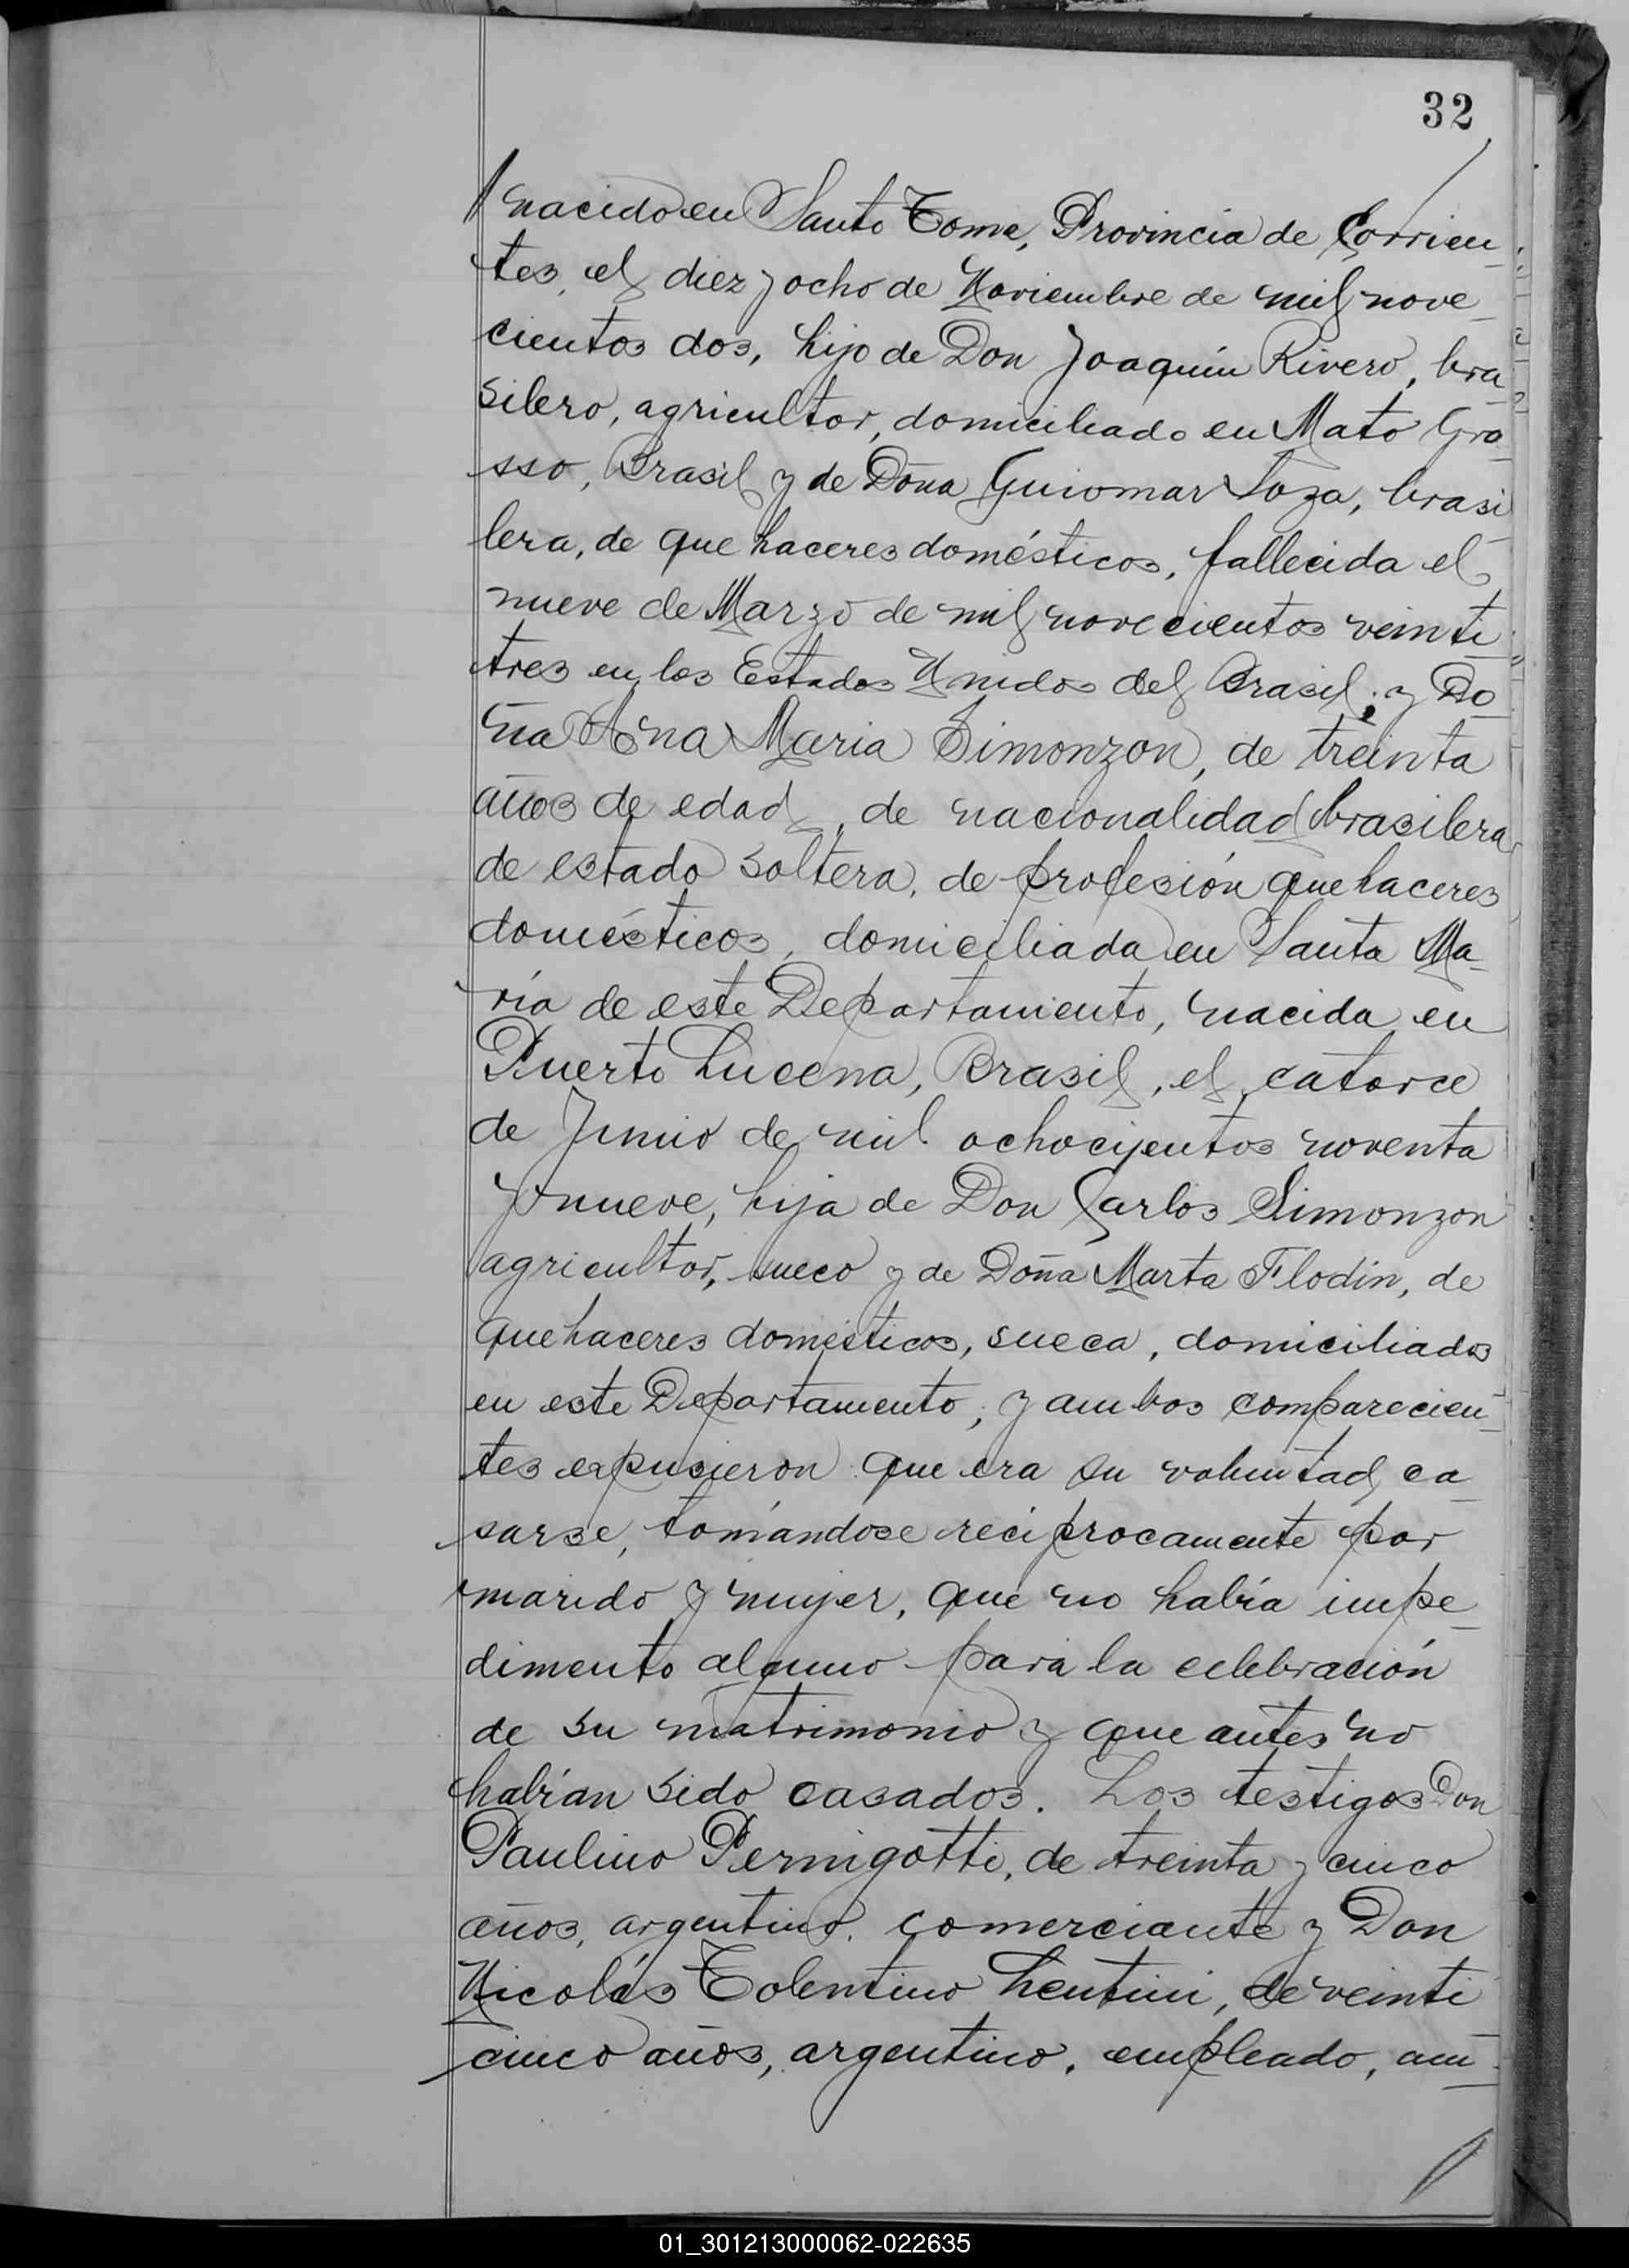 32
nacido en Santo Tome, Provincia de Corrien_
tes, el diez y ocho de Noviembre de mil nove_
cientos dos, hijo de Don Joaquín Rivero, bra_
silero, agricultor, domiciliado en Mato Gro_
sso, Brasil y de Doña Guiomar Soza, brasi_
lera, de que haceres domésticos, fallecida el
nueve de Marzo de mil novecientos veinti_
tres en los Estados Unidos del Brasil; y Do_
ña Ana Maria Simonzon, de treinta
años de edad, de nacionalidad brasilera
de estado soltera, de profesión quehaceres
domésticos, domiciliada en Santa Ma_
ría de este Departamento, nacida en
Puerto Lucena, Brasil, el catorce
de Junio de mil ochocientos noventa
y nueve, hija de Don Carlos Simonzon
agricultor, sueco y de Doña Marta Flodin, de
quehaceres domésticos, sueca, domiciliados
en este Departamento; y ambos comparecien_
tes expusieron que era su voluntad ca_
sarse, tomándose reciprocamente por
marido y mujer, que no había impe_
dimento alguno para la celebración
de su matrimonio y que antes no
habían sido casados. Los testigos Don
Paulino Pernigotti, de treinta y cinco
años, argentino, comerciante y Don
Nicolás Tolentino Lentini, de veinti_
cinco años, argentino, empleado, am_
01_301213000062-022635